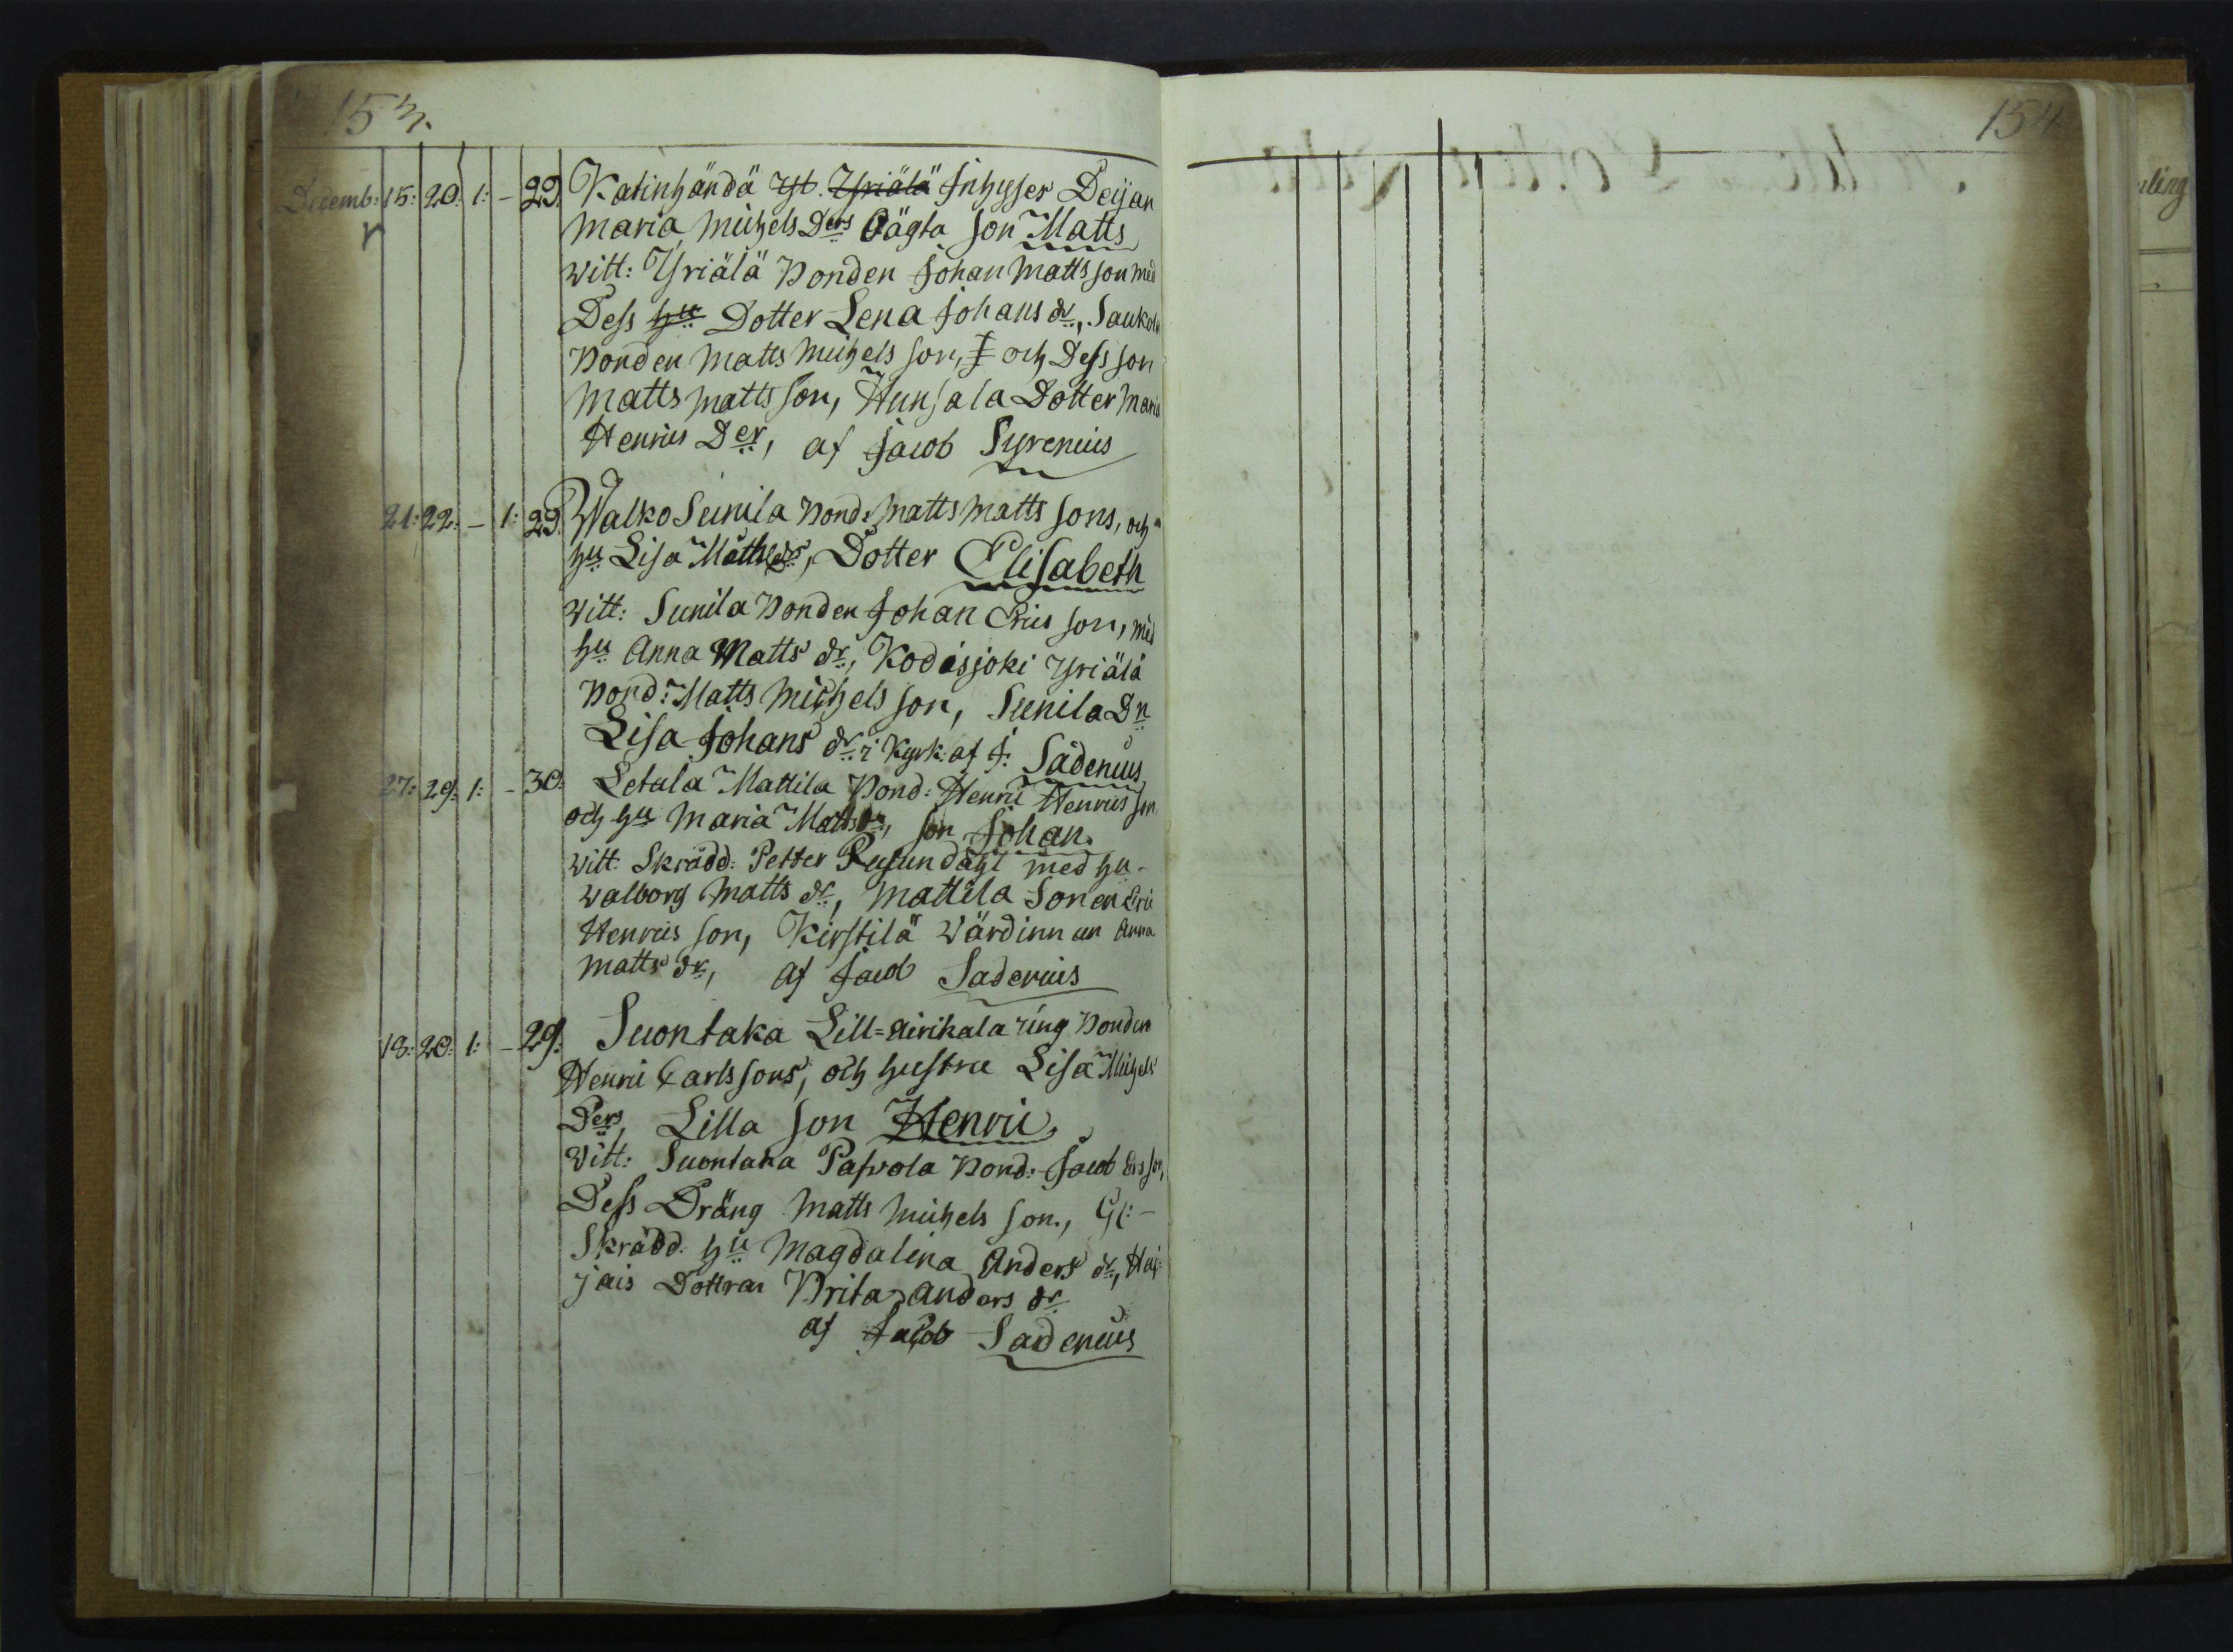 153.
154
Decemb: 15: 20: 1: - 29. Katinhändä Yst. Yriälä Inhyses Deijan
Maria Michels Ders Oägta Son Matts
Witt: Yriälä Bonden Johan Mattsson med
Dess hu Dotter Lena Johans dr., Saukola
Bonden Matts Michels son, och Dess son
Matts Matts son, Hunsala Dotter Maria
Henrics Der, af Jacob Syrenius
21: 22: - 1: 29. Walko Sunila Bond: Matts Matts sons, och
hu Lisa Matts drs, Dotter Elisabeth
Witt: Sunila Bonden Johan Erics son, med
hu Anna Matts dr, Kodisjoki Yriälä
Bond: Matts Michels son, Sunila Dn
Lisa Johans dr. i Kyrk: af J: Sadenius
27: 29: 1: - 30: Letala Mattila Bond: Henric Henrics son
och hu Maria Matts dr, son Johan.
Witt: Skrädd: Petter med hu
Walborg Matts dr, Mattila Sonen Eric
Henrics son, Kirstilä Wärdinnan Anna
Matts dr, af Jacob Sadenius
18: 20: 1: - 29: Suontaka Lill=Airikala ring Bonden
Henric Carlssons, och hustru Lisa Michels
Ders, Lilla son Henric,
Witt: Suontaka Pafvola Bond: Jacob Ers son,
Dess Dräng Matts Michels son,
Skrädd. hu Magdalena Anders dr, Haj=
jais Dottran Brita Anders dr
af Jacob Sadenius
ling